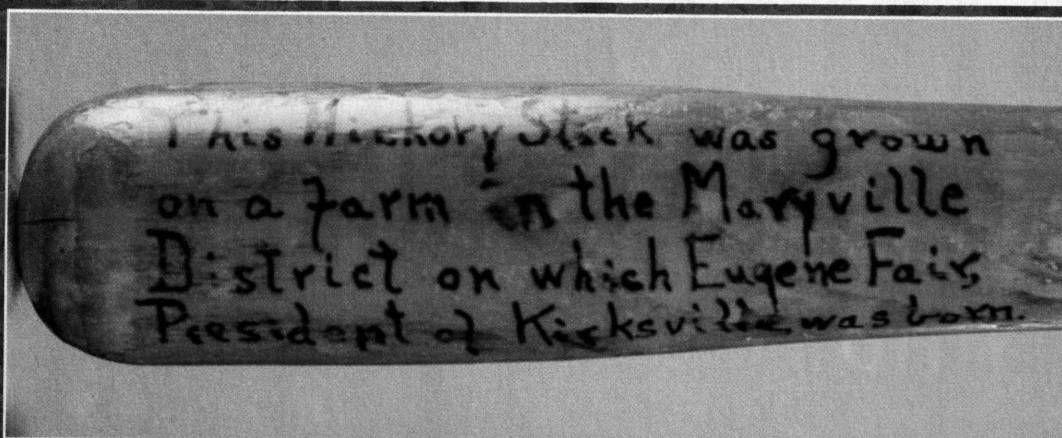 This Hickory Stick was grown
on a farm in the Maryville
District on which Eugene Fair,
President of Kirksville was born.